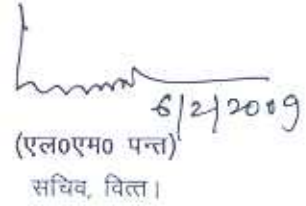 6/2/2009
(एल0एम0 पन्त)
सचिव, वित्त।